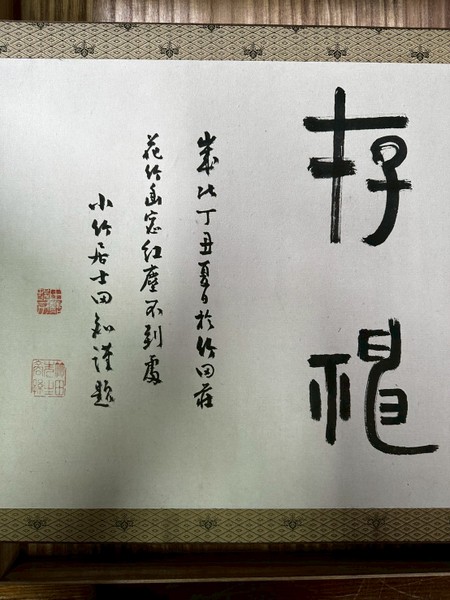 存
歲次丁丑夏日於竹田莊
花竹幽窓紅塵不到處
小竹居士田謹題